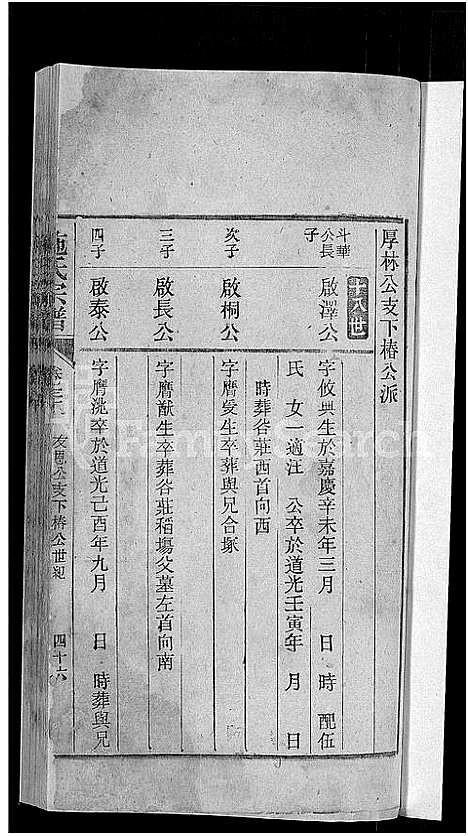 厚林公支下椿公派
十八世
斗華公長子
啟澤公
字攸興生於嘉慶辛未年三月 日 時 配伍
氏 女一適汪 公卒於道光壬寅年 月 日
時葬谷莊西首向西
次子
啟桐公
字曆爱生卒葬與兄合塚
三子
啟長公
字曆猷生卒葬谷莊稻場父墓左首向南
四子
啟泰公
字曆洮卒於道光己酉年九月 日 時葬與兄
施氏宗譜
友恩公支下椿公世紀
四十六
FamilySearch